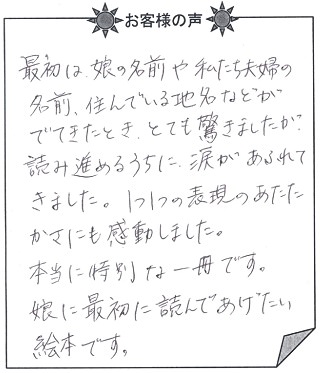 お客様の声
最初は、娘の名前や私たち夫婦の
名前、住んでいる地名などが
でてきたとき、とても驚きましたが、
読み進めるうちに、涙があふれて
きました。1つ1つの表現のあたた
かさにも感動しました。
本当に特別な一冊です。
娘に最初に読んであげたい
絵本です。